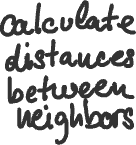 calculate
distances
between
neighbors